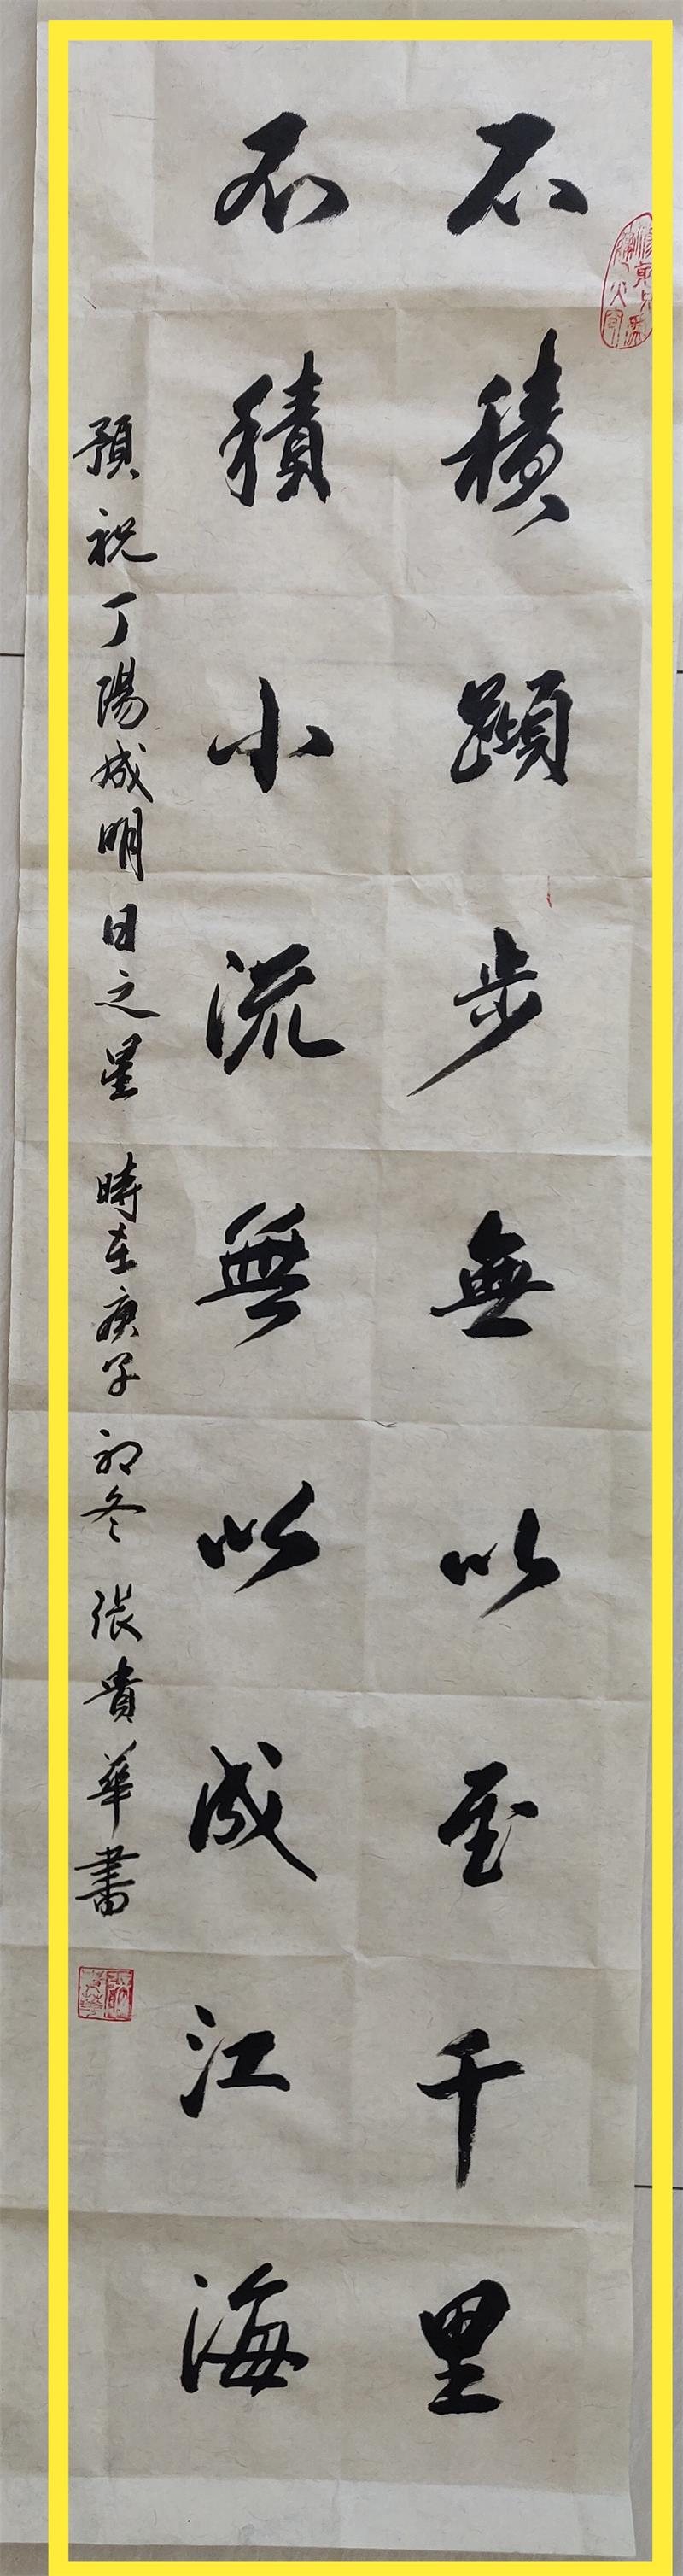 不積蹞步無以至千里
不積小流無以成江海
預祝丁陽成明日之星 時在庚子初冬 張貴華書